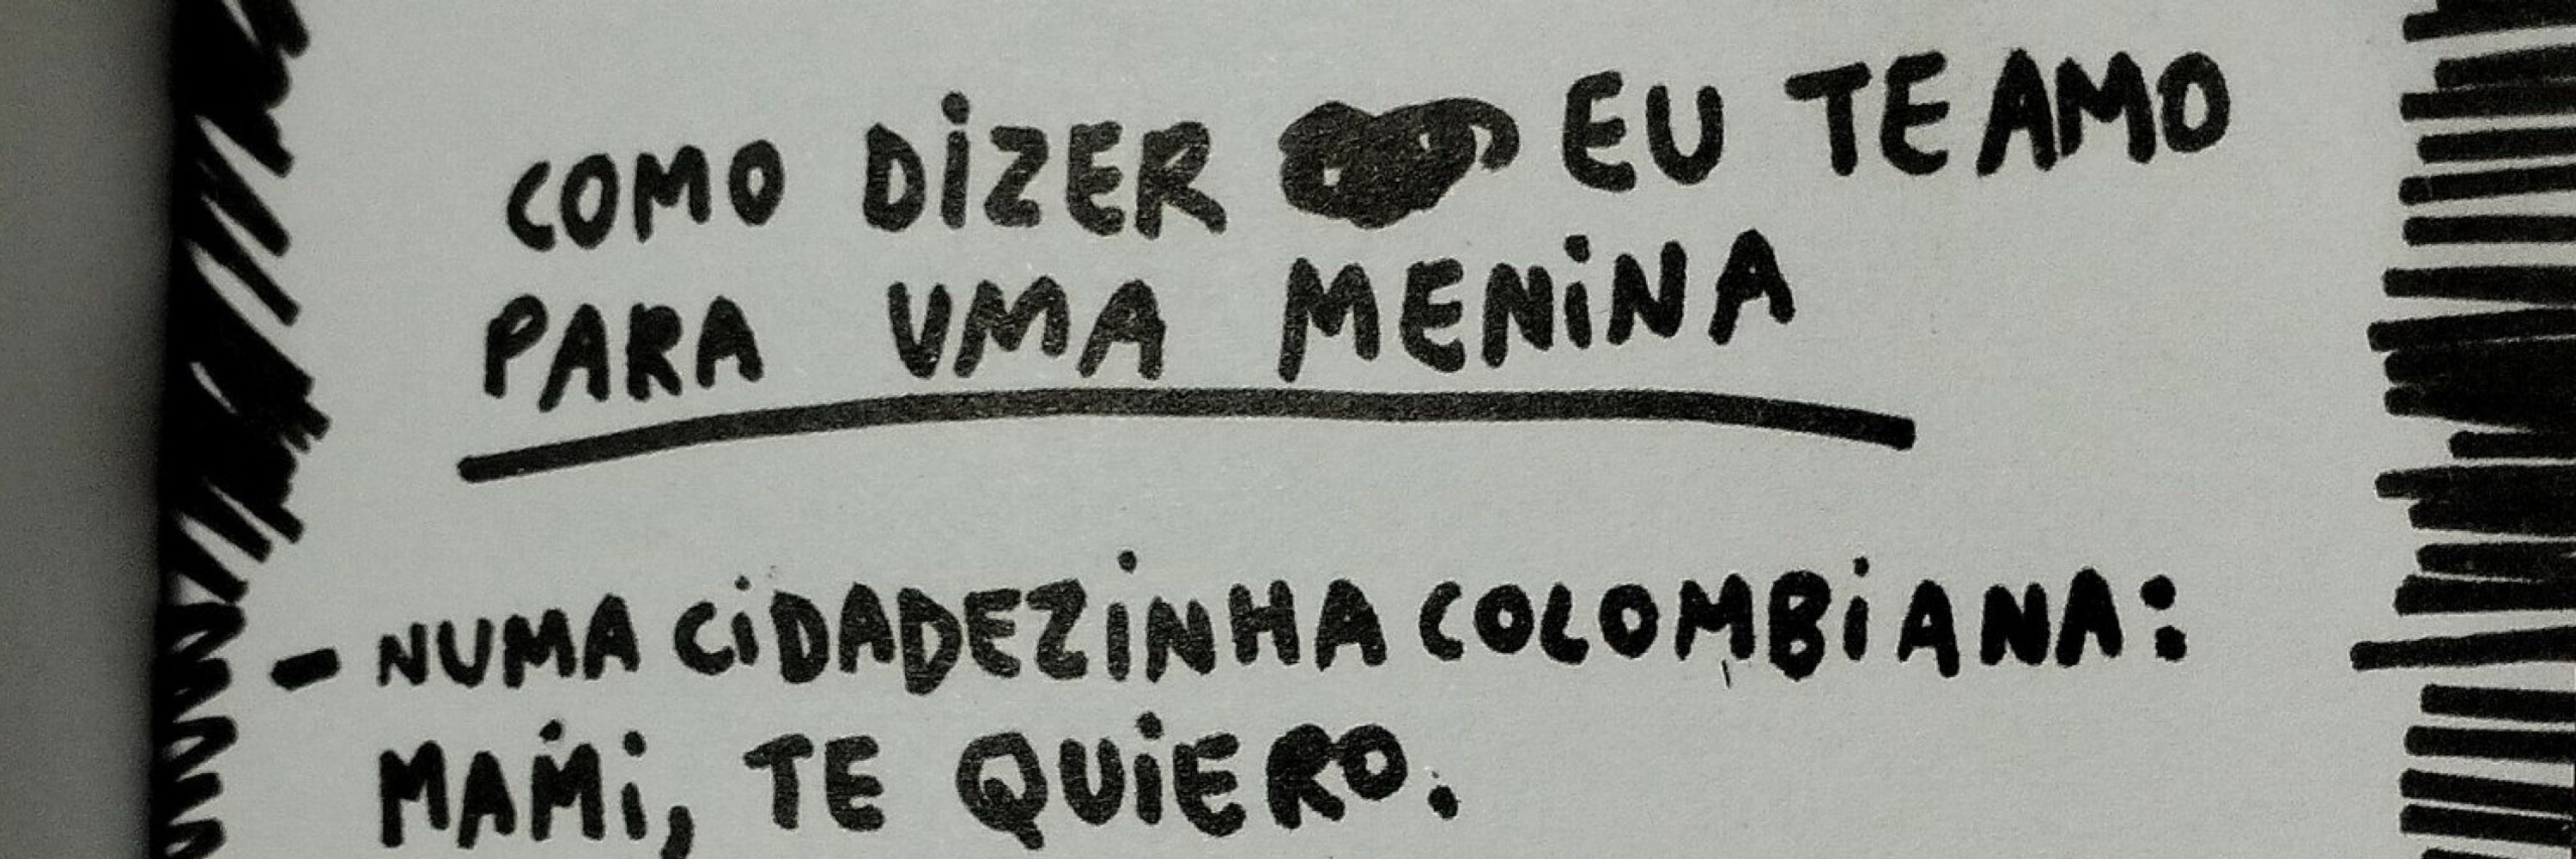 COMO DIZER EU TE AMO
PARA UMA MENINA
- NUMA CIDADEZINHA COLOMBIANA:
MAMI, TE QUIERO.